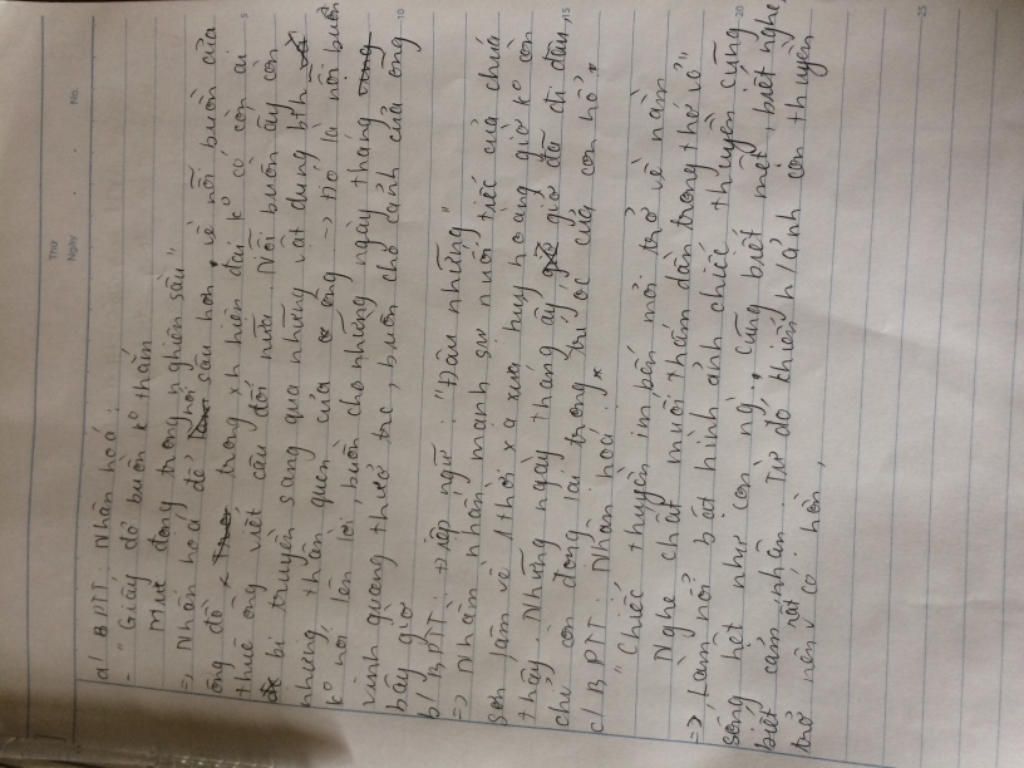 Thứ
Ngày
No.
a/ BPTT: Nhân hoá:
- "Giấy đỏ buồn k° thắm
Mực đọng trong nghiên sầu"
=> Nhân hoá để nói sâu hơn, về nỗi buồn của
ông đồ trong xh hiện đại k° có còn ai
thuê ông viết câu đối nữa. Nỗi buồn ấy còn
bị truyền sang qua những vật dụng bth
nhưng thân quen của ông -> Đó là nỗi buồn
k° nói lên lời, buồn cho những ngày tháng
vinh quang thuở trc, buồn cho cảnh của ông
bây giờ
b/ BPTT: Điệp ngữ: "Đâu những"
=> Nhằm nhấn mạnh sự nuối tiếc của chúa
sơn lâm về 1 thời xa xưa huy hoàng giờ k° còn
thấy. Những ngày tháng ấy giờ đã đi đâu,
chỉ còn đọng lại trong trí óc của con hổ.
c/ BPTT: Nhân hoá:
"Chiếc thuyền im bến mỏi trở về nằm
Nghe chất muối thấm dần trong thớ vỏ"
=> Làm nổi bật hình ảnh chiếc thuyền cũng
sống hệt như con ng`, cũng biết mệt, biết nghe,
biết cảm nhận. Từ đó khiến h/ảnh con thuyền
trở nên rất có hồn,
5
10
15
20
25